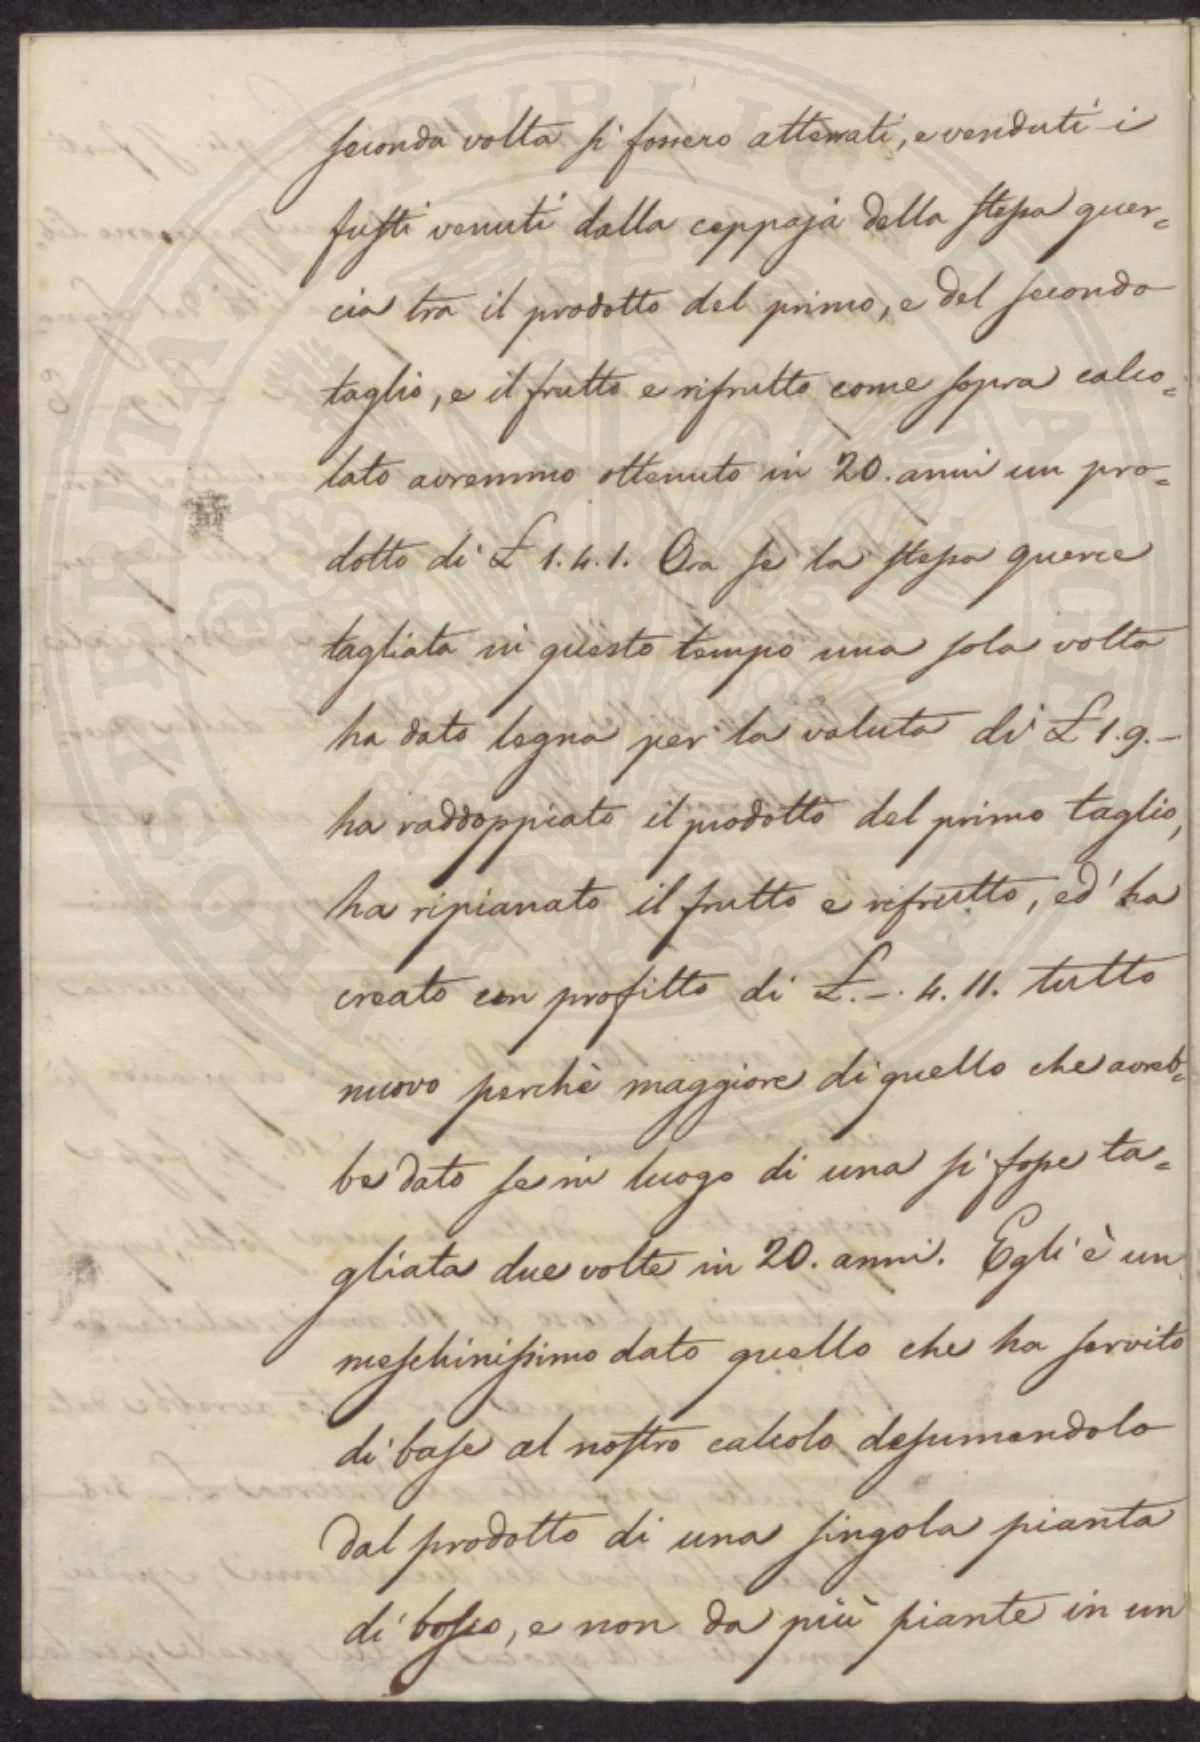 seconda volta si fossero atterrati, e venduti i
fusti venuti dalla ceppaja della stessa quer=
cia tra il prodotto del primo, e del secondo
taglio, e il frutto e rifrutto come sopra calco=
lato avremmo ottenuto in 20. anni un pro=
dotto di £ 1. 4. 1. Ora se la stessa querce
tagliata in questo tempo una sola volta
ha dato legna per la valuta di £ 1. 9. -
ha raddoppiato il prodotto del primo taglio,
ha ripianato il frutto e rifrutto, ed' ha
creato un profitto di £. -. 4. 11. tutto
nuovo perchè maggiore di quello che avreb=
be dato se in luogo di una si fosse ta=
gliata due volte in 20. anni. Egli è un
meschinissimo dato quello che ha servito
di base al nostro calcolo desumendolo
dal prodotto di una singola pianta
di bosco, e non da più piante in un
ROSPERITATI PUBLICAE AUGENDAE